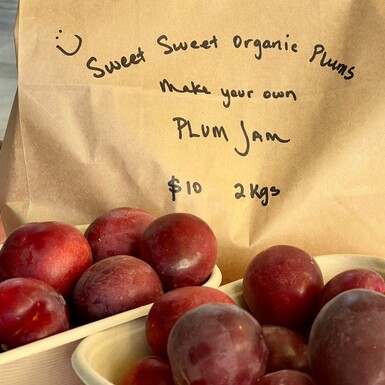 :)
Sweet Sweet Organic Plums
Make your own
PLUM JAM
$10 2Kgs